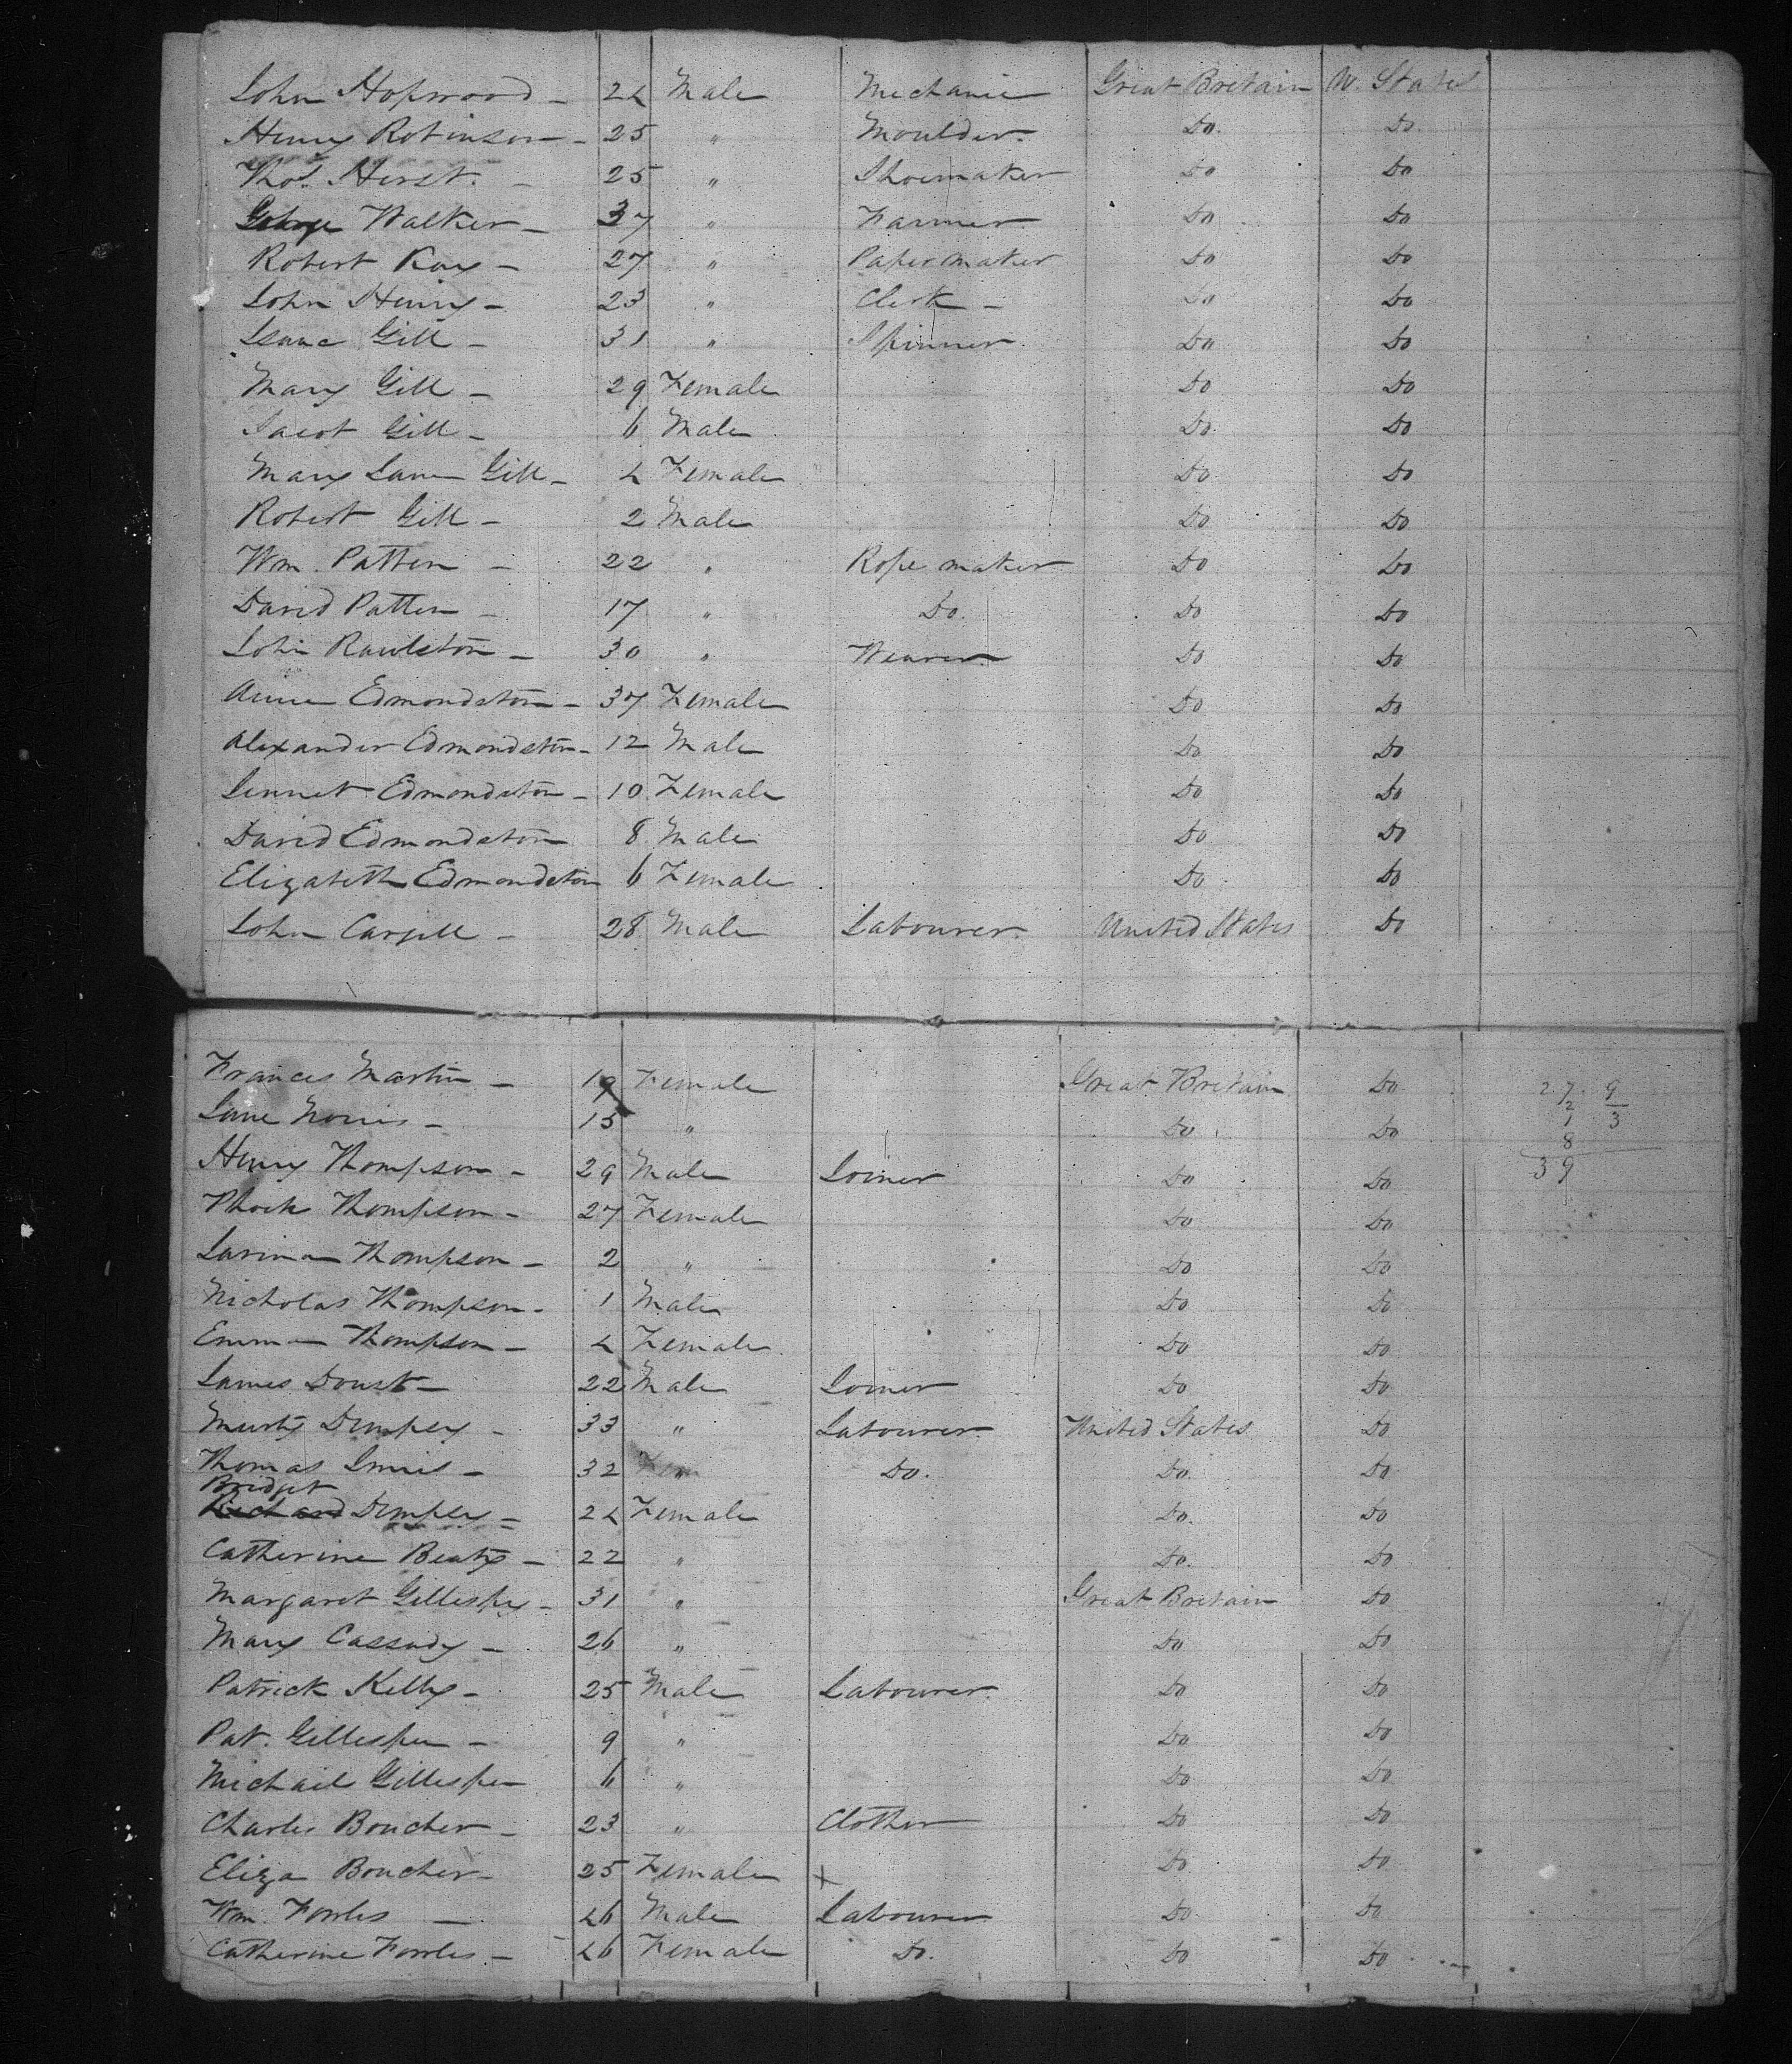 John Hopwood - 24 Male Mechanic Great Britain U. States
Henry Robinson - 25 " Moulder Do. Do.
Thos. Hirst. - 25 " Shoemaker Do Do
George Walker - 37 " Farmer Do Do
Robert Kay - 27 " Paper maker Do Do
John Henry - 23 " Clerk - Do Do
Isaac Gill - 31 " Spinner Do Do
Mary Gill - 29 Female Do Do
Jacob Gill - 6 Male Do Do
Mary Jane Gill - 4 Female Do Do
Robert Gill - 2 Male Do Do
Wm. Patten - 22 " Rope maker Do Do
David Patten - 17 " Do. Do Do
John Rawlston - 30 " Weaver Do Do
Anne Edmondston - 37 Female Do Do
Alexander Edmondston - 12 Male Do Do
Jennet Edmondston - 10 Female Do Do
David Edmondston 8 Male Do Do
Elizabeth Edmondston 6 Female Do Do
John Cargill - 28 Male Labourer United States Do
Frances Martin - 19 Female Great Britain Do 27 9
Jane - 15 " Do Do 2 1 3 8
Henry Thompson - 29 Male Joiner Do Do 39
Thompson - 27 Female Do Do
Thompson - 2 " Do Do
Nicholas Thompson - 1 Male Do Do
Emma Thompson - 4 Female Do Do
James Doust - 22 Male Joiner Do Do
Dempsey - 33 " Labourer United States Do
Thomas - 32 " Do. Do. Do
Bridget
Richard Dempsey - 24 Female Do. Do
Catherine Beaty - 22 " Do. Do
Margaret Gillespey - 31 " Great Britain Do
Mary Cassady - 26 " Do Do
Patrick Kelly - 25 Male Labourer Do Do
Pat. Gillespie - 9 " Do Do
Michail Gillespie 6 " Do Do
Charles Boucher - 23 " Clothier Do Do
Eliza Boucher - 25 Female x Do Do
Wm. Fowles - 46 Male Labourer Do Do
Catherine Fowles - 46 Female Do. Do Do